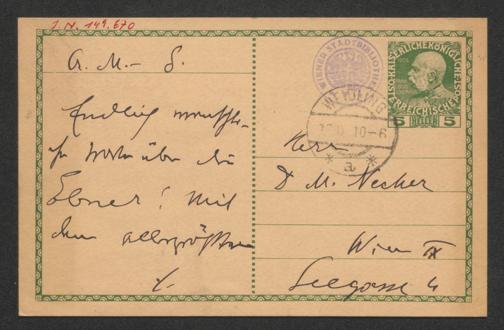 I. N. 149.670
A. M. - S.
Endlich
Worte über die
Ebner! Mit
dem allergrößten
WIENER STADTBIBLIOTHEK
KAISERLICHE KÖNIGLICHE
ÖSTERREICHISCHE POST
5 HELLER 5
10-6
* a *
Herr
Dr M. Necker
Wien IX
Seegasse 4